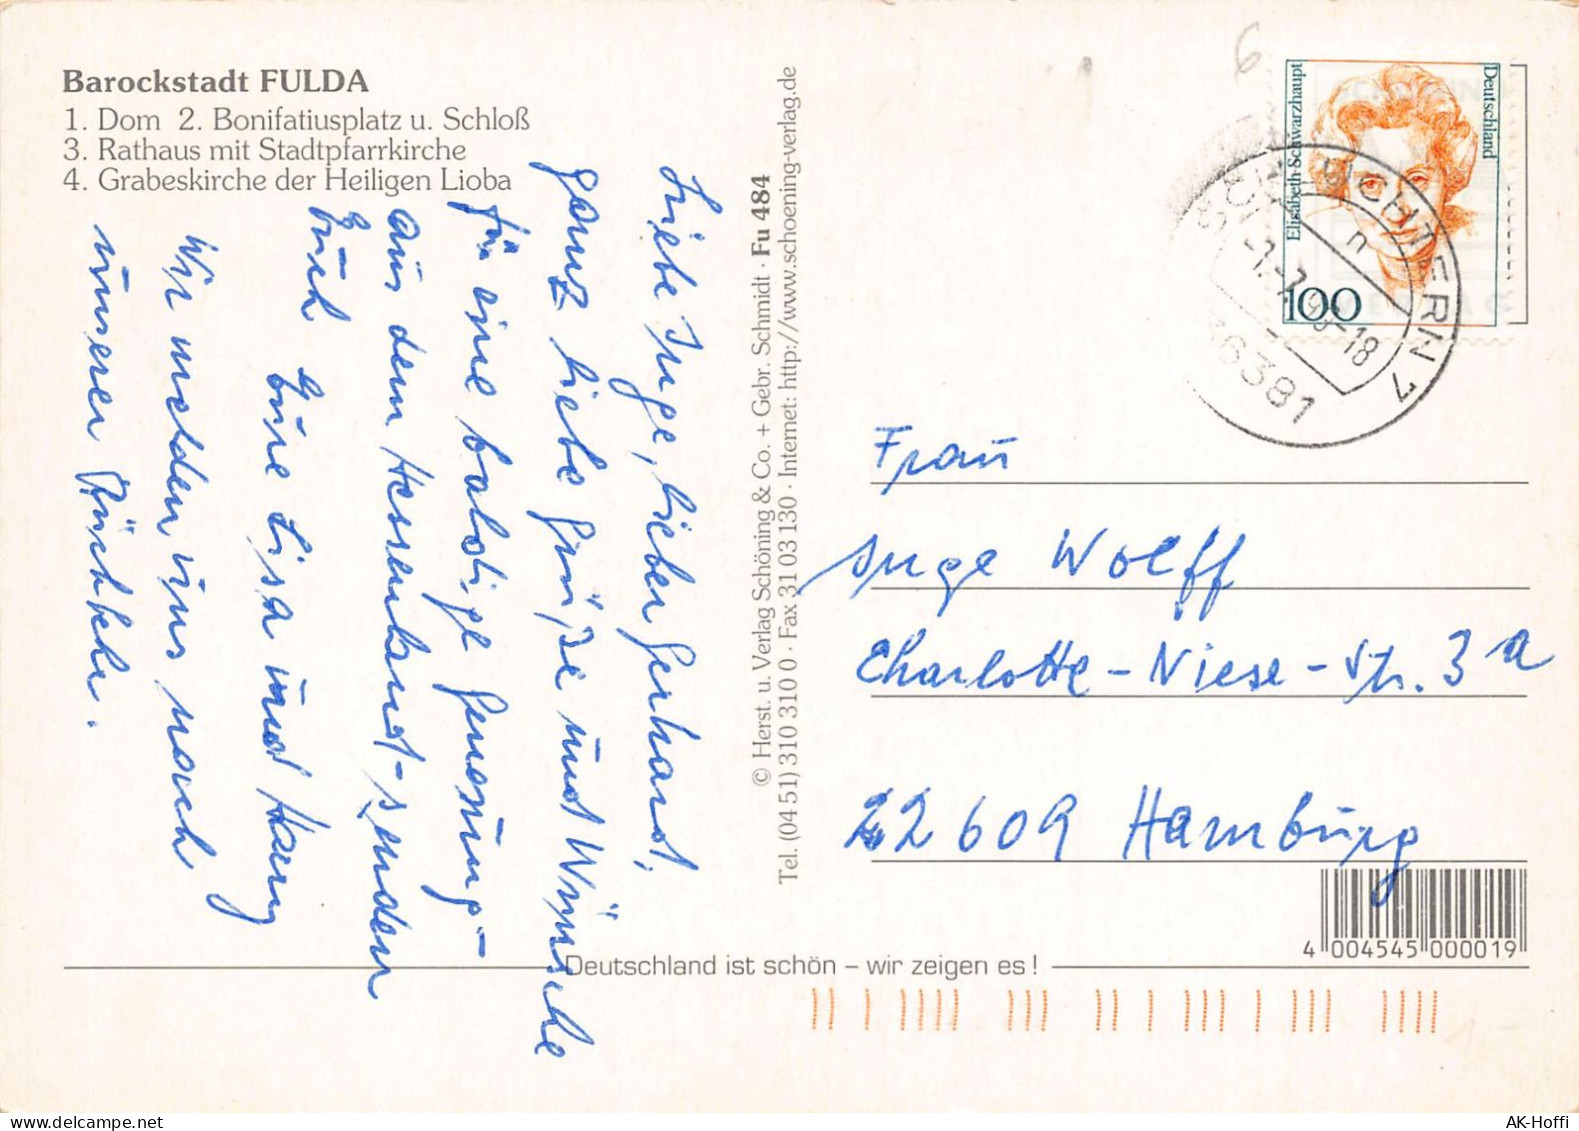 Barockstadt FULDA
1. Dom 2. Bonifatiusplatz u. Schloß
3. Rathaus mit Stadtpfarrkirche
4. Grabeskirche der Heiligen Lioba
Liebe Inge, lieber Gerhard,
ganz liebe Grüße und Wünsche
für eine baldige Genesung -
aus dem Hessenland - senden
Euch
Eure Lisa und
Wir melden uns noch
unserer Rückkehr.
© Herst. u. Verlag Schöning & Co. + Gebr. Schmidt · Fu 484
Tel. (04 51) 310 310 0 · Fax 31 03 130 · Internet: http://www.schoening-verlag.de
Elisabeth Schwarzhaupt
Deutschland
100
SCHLÜCHTERN 1
n
-18
36381
6
Frau
Inge Wolff
Charlotte-Niese-Str. 3 a
22609 Hamburg
4 004545 000019
Deutschland ist schön – wir zeigen es !
AK-Hoffi